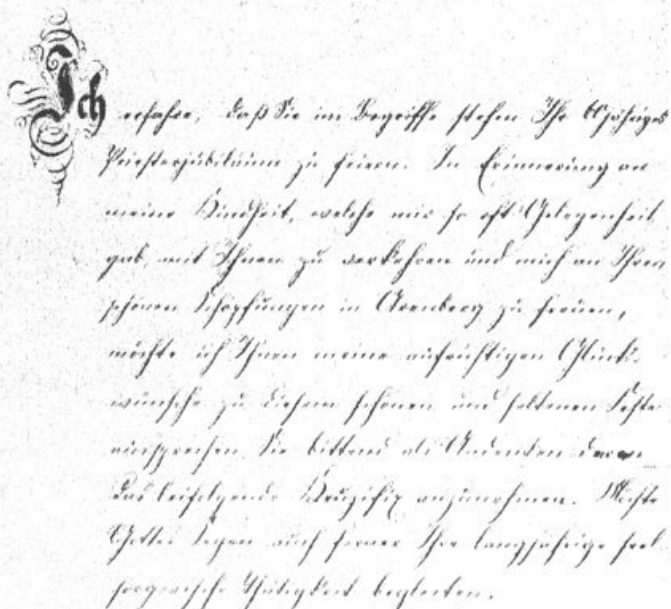 Ich erfahre, daß Sie im Begriffe stehen Ihr 60jähriges
Priesterjubiläum zu feiern. In Erinnerung an
meine Kindheit, welche mir so oft Gelegenheit
gab, mit Ihnen zu verkehren und mich an Ihren
schönen Schöpfungen in Arenberg zu freuen,
möchte ich Ihnen meine aufrichtigen Glücks-
wünsche zu diesem schönen und seltenen Feste
aussprechen Sie bittend als Andenken daran
das beifolgende Kruzifix anzunehmen. Möchte
Gottes Segen auch ferner Ihre langjährige seel-
sorgerische Thätigkeit begleiten.